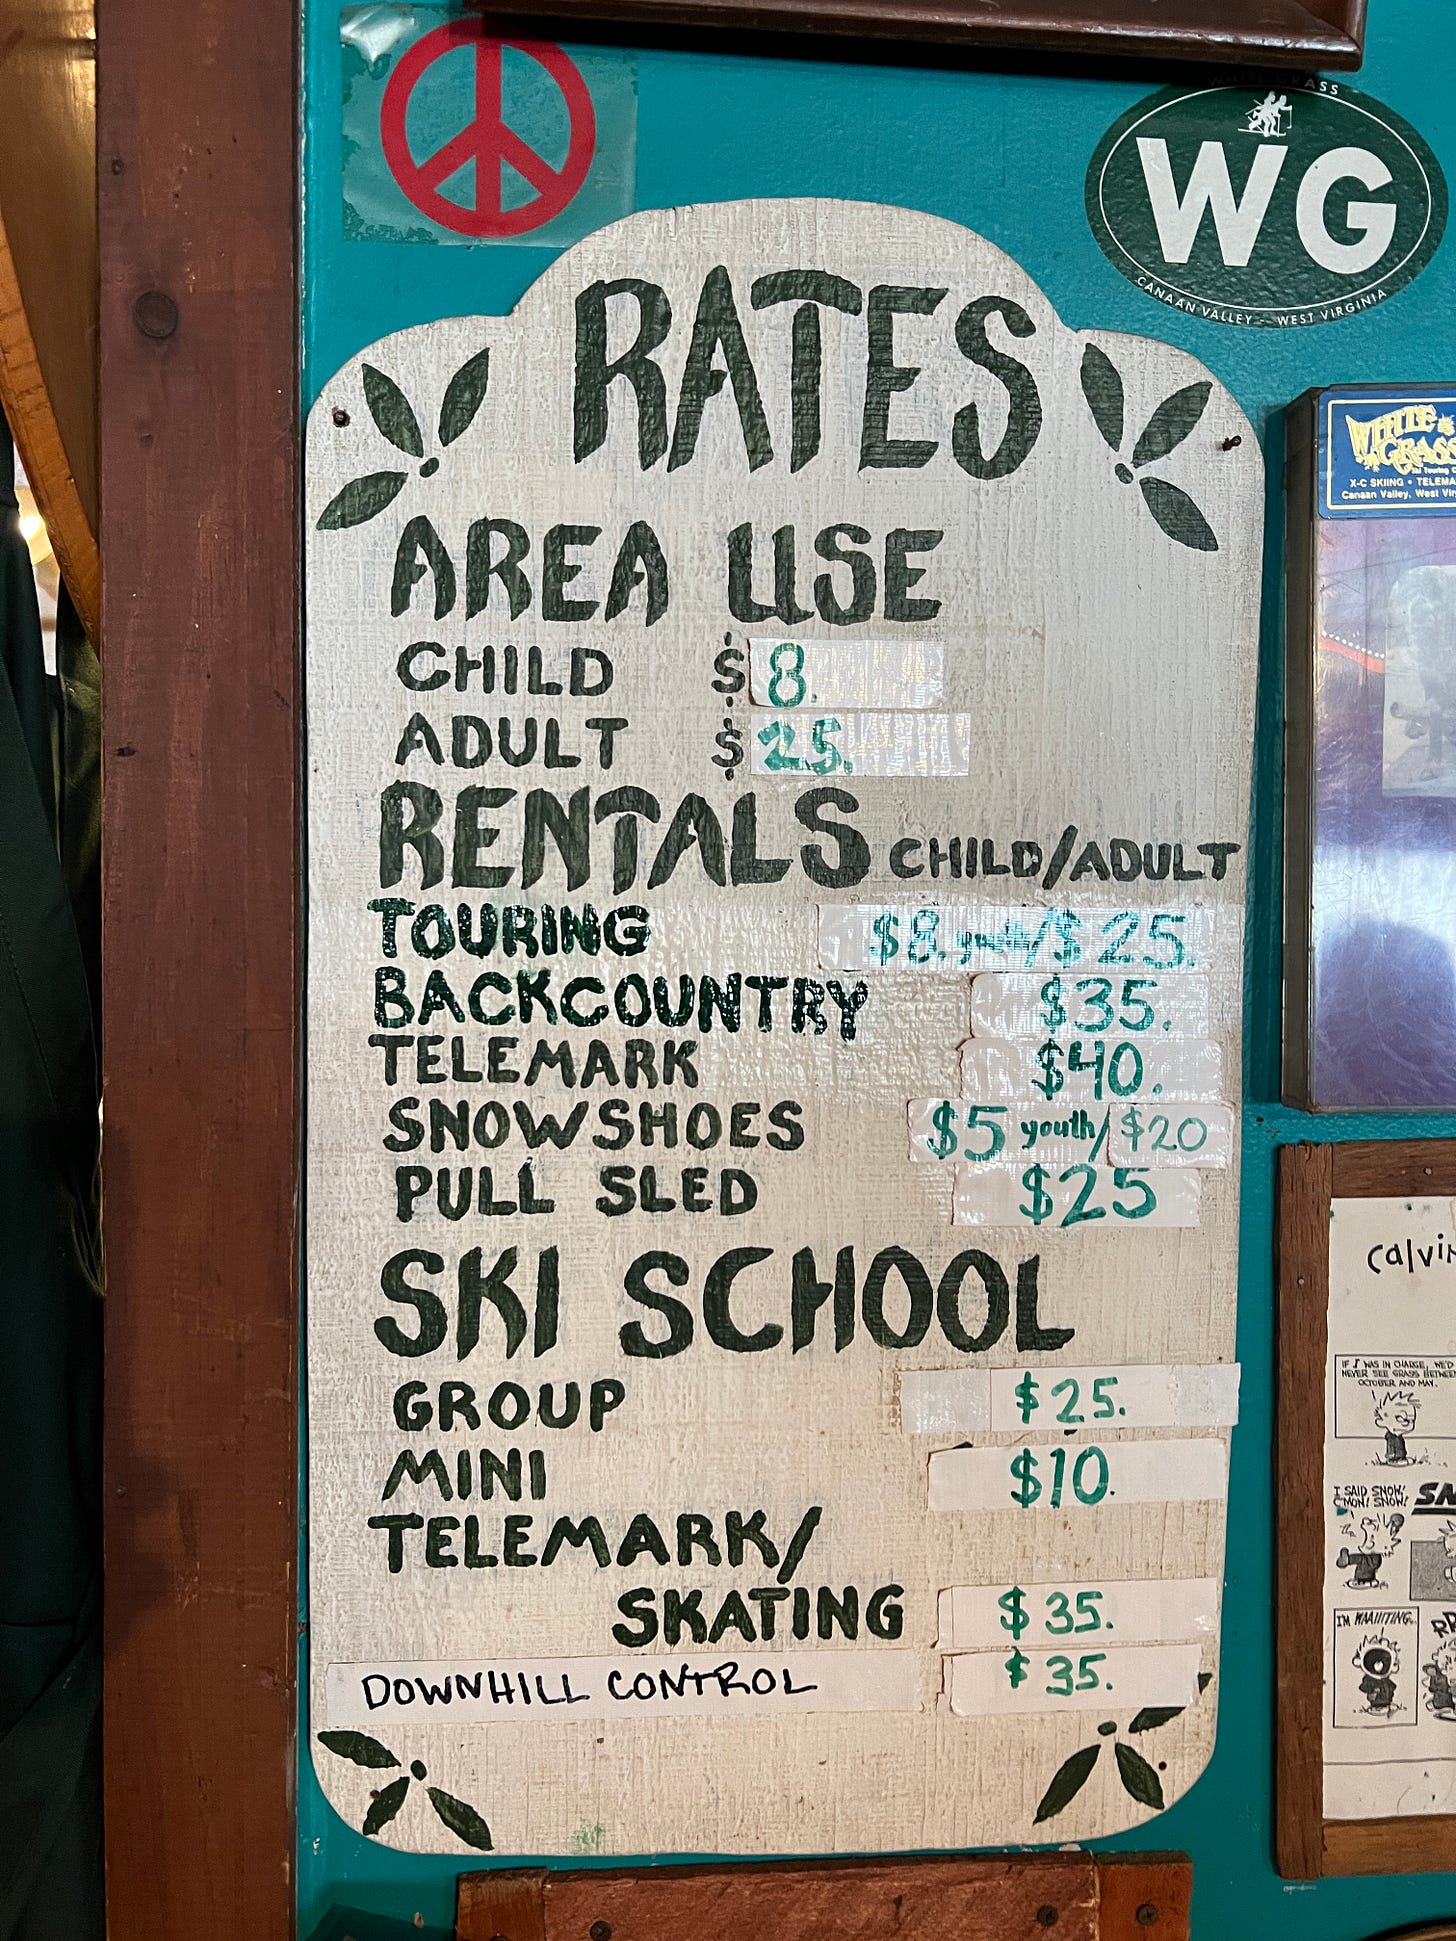 WHITE GRASS
WG
CANAAN VALLEY - WEST VIRGINIA
RATES
AREA USE
CHILD $8.
ADULT $25.
RENTALS CHILD/ADULT
TOURING $8. youth/$25.
BACKCOUNTRY $35.
TELEMARK $40.
SNOWSHOES $5 youth/$20
PULL SLED $25
SKI SCHOOL
GROUP $25.
MINI $10.
TELEMARK/
SKATING $35.
DOWNHILL CONTROL $35.
WHITE
GRASS
Ski Touring
X-C SKIING • TELEMA
Canaan Valley, West Vir
Calvin
IF I WAS IN CHARGE, WE'D
NEVER SEE GRASS BETWEEN
OCTOBER AND MAY.
I SAID SNOW!
C'MON! SNOW!
SN
I'M WAAIIITING...